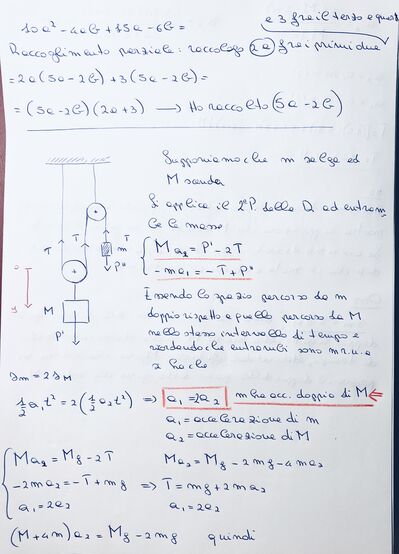 10a² - 4ab + 15a - 6b =
e 3 fra il terzo e quar
Raccoglimento parziale: raccolgo 2a fra i primi due
= 2a(5a-2b) + 3(5a-2b) =
= (5a-2b)(2a+3) → Ho raccolto (5a-2b)
Supponiamo che m salga ed
M scenda
Si applica il 2°P. della D. ad entram
be le masse
Ma₂ = P' - 2T
-ma₁ = -T + P"
T T T m P"
o
y
M
P'
Essendo lo spazio percorso da m
doppio rispetto a quello percorso da M
nello stesso intervallo di tempo e
ricordando che entrambi sono m.r.u.a
si ha che
sm = 2sM
½a₁t² = 2(½a₂t²) ⇒ a₁ = 2a₂ m ha acc. doppio di M
a₁ = accelerazione di m
a₂ = accelerazione di M
Ma₂ = Mg - 2T Ma₂ = Mg - 2mg - 4ma₂
-2ma₂ = -T + mg ⇒ T = mg + 2ma₂
a₁ = 2a₂ a₁ = 2a₂
(M+4m)a₂ = Mg - 2mg quindi